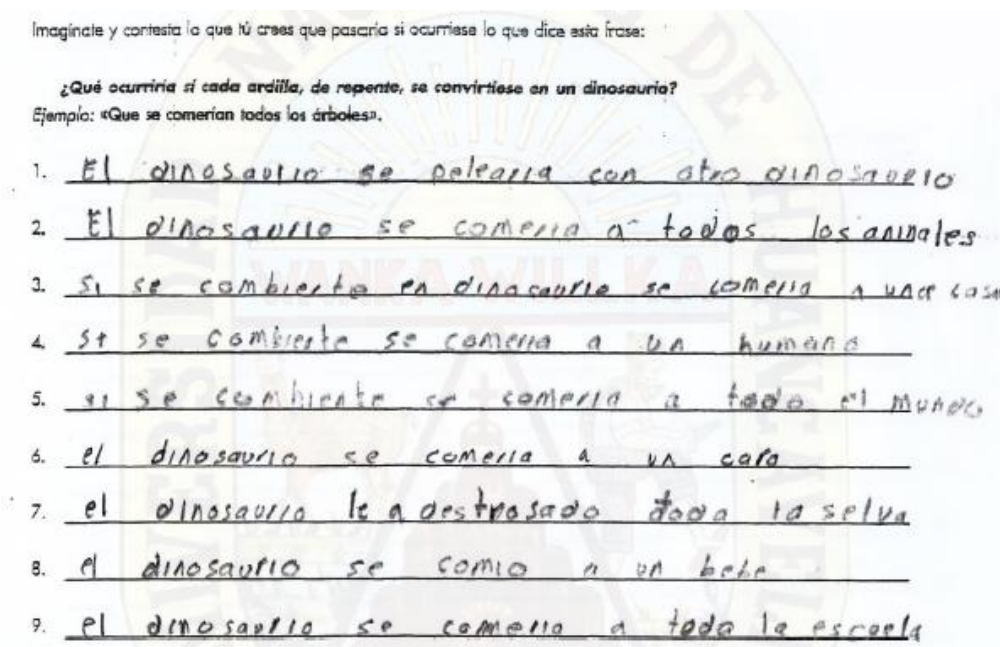 Imagínate y contesta lo que tú crees que pasaría si ocurriese lo que dice esta frase:
¿Qué ocurriría si cada ardilla, de repente, se convirtiese en un dinosaurio?
Ejemplo: «Que se comerían todos los árboles».
1. El dinosaurio se pelearia con otro dinosaurio
2. El dinosaurio se comeria a todos los animales
3. Si se combierte en dinacaurio se comeria a una casa
4. si se combierte se comeria a un humano
5. si se combiente se comeria a todo el mundo
6. el dinosaurio se comeria a un
7. el dinosaurio le a destrosado toda la selva
8. el dinosaurio se comio a un bebe
9. el dinosaurio se comeria a toda la escuela
WANKA WILLKA